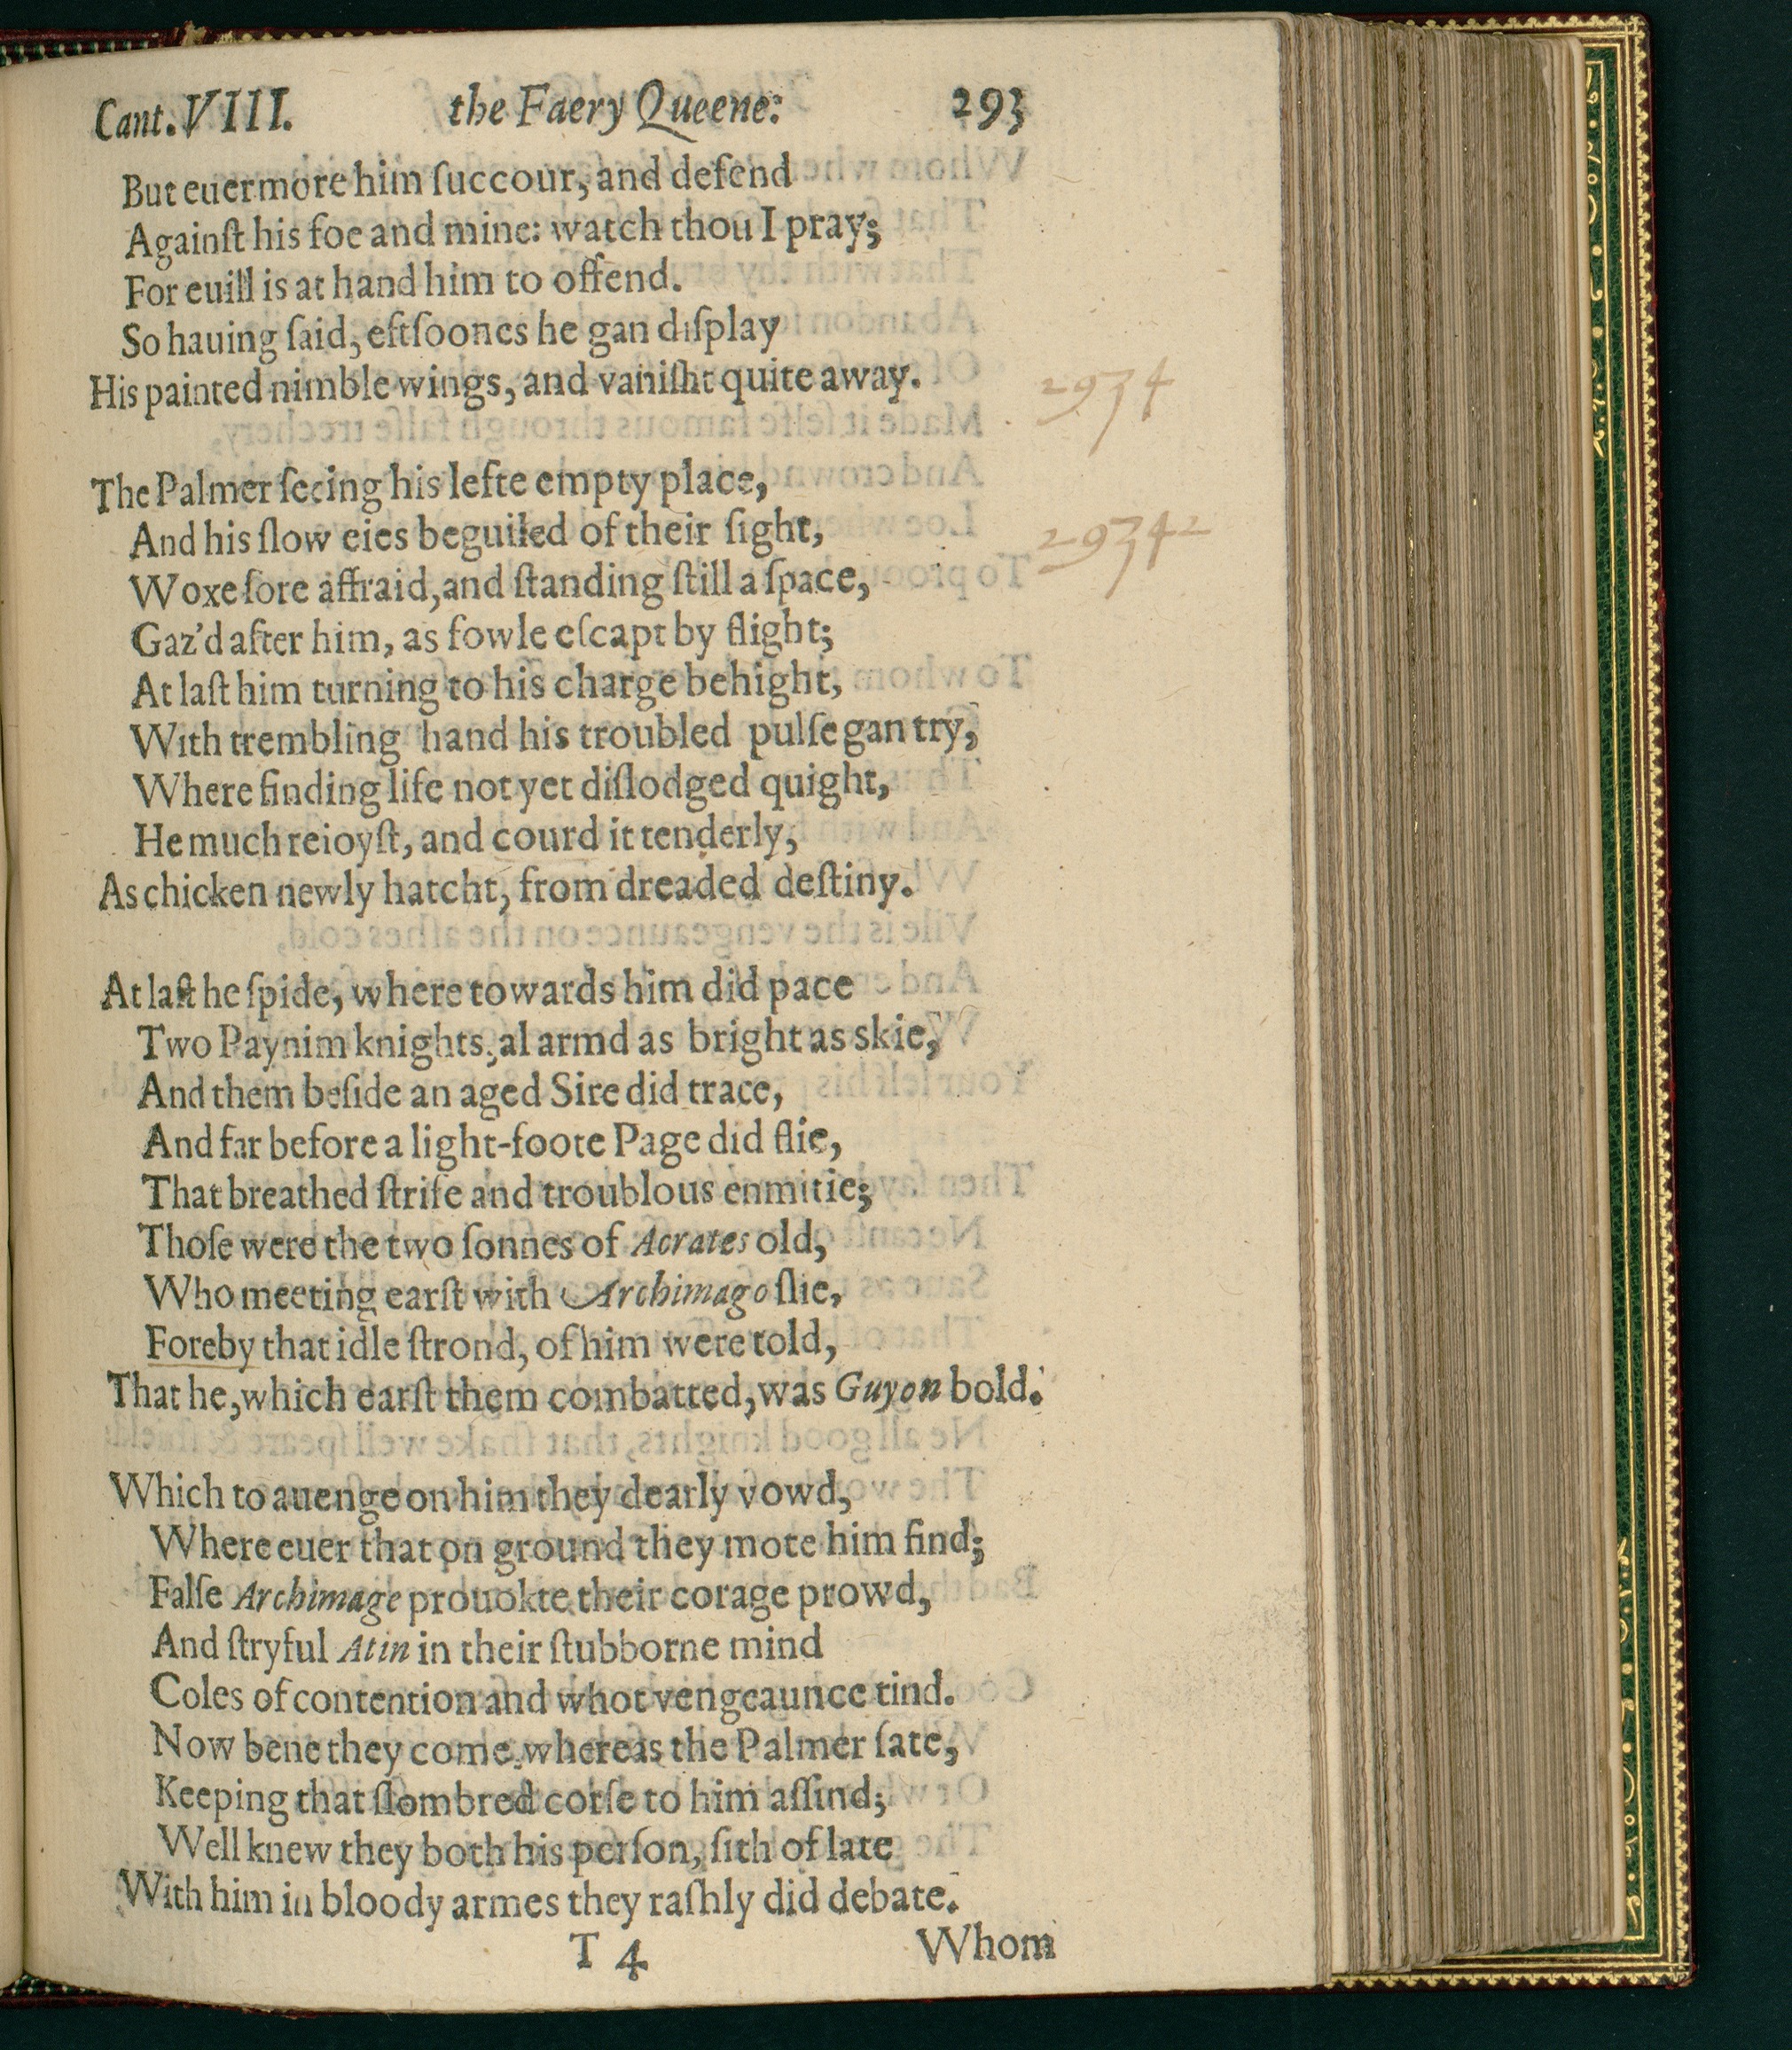 Cant. VIII. the Faery Queene: 293
But euermore him ſuccour, and defend
Againſt his foe and mine: watch thou I pray;
For euill is at hand him to offend.
So hauing ſaid, eftſoones he gan diſplay
His painted nimble wings, and vaniſht quite away.
2934
The Palmer ſeeing his lefte empty place,
And his ſlow eies beguiled of their ſight,
29342
Woxe ſore affraid, and ſtanding ſtill a ſpace,
Gaz'd after him, as fowle eſcapt by flight;
At laſt him turning to his charge behight,
With trembling hand his troubled pulſe gan try,
Where finding life not yet diſlodged quight,
He much reioyſt, and courd it tenderly,
As chicken newly hatcht, from dreaded deſtiny.
At laſt he ſpide, where towards him did pace
Two Paynim knights, al armd as bright as skie,
And them beſide an aged Sire did trace,
And far before a light-foote Page did flie,
That breathed ſtrife and troublous enmitie;
Thoſe were the two ſonnes of Acrates old,
Who meeting earſt with Archimago ſlie,
Foreby that idle ſtrond, of him were told,
That he, which earſt them combatted, was Guyon bold.
Which to auenge on him they dearly vowd,
Where euer that on ground they mote him find;
Falſe Archimage prouokte their corage prowd,
And ſtryful Atin in their ſtubborne mind
Coles of contention and whot vengeaunce tind.
Now bene they come, whereas the Palmer ſate,
Keeping that ſlombred corſe to him aſſind;
Well knew they both his perſon, ſith of late
With him in bloody armes they raſhly did debate.
T 4 Whom